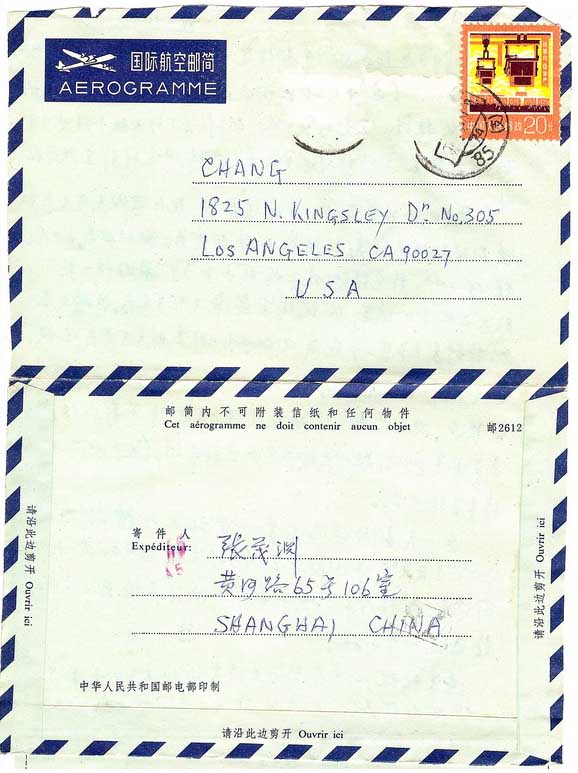 国际航空邮简
AEROGRAMME
20分
85
CHANG
1825 N. KINGSLEY Dr. No. 305
LOS ANGELES CA 90027
USA
邮简内不可附装信纸和任何物件
Cet aérogramme ne doit contenir aucun objet
邮2612
请沿此边剪开 Ouvrir ici
寄件人
Expéditeur:
张茂渊
黄河路65号106室
SHANGHAI CHINA
请沿此边剪开 Ouvrir ici
中华人民共和国邮电部印制
请沿此边剪开 Ouvrir ici